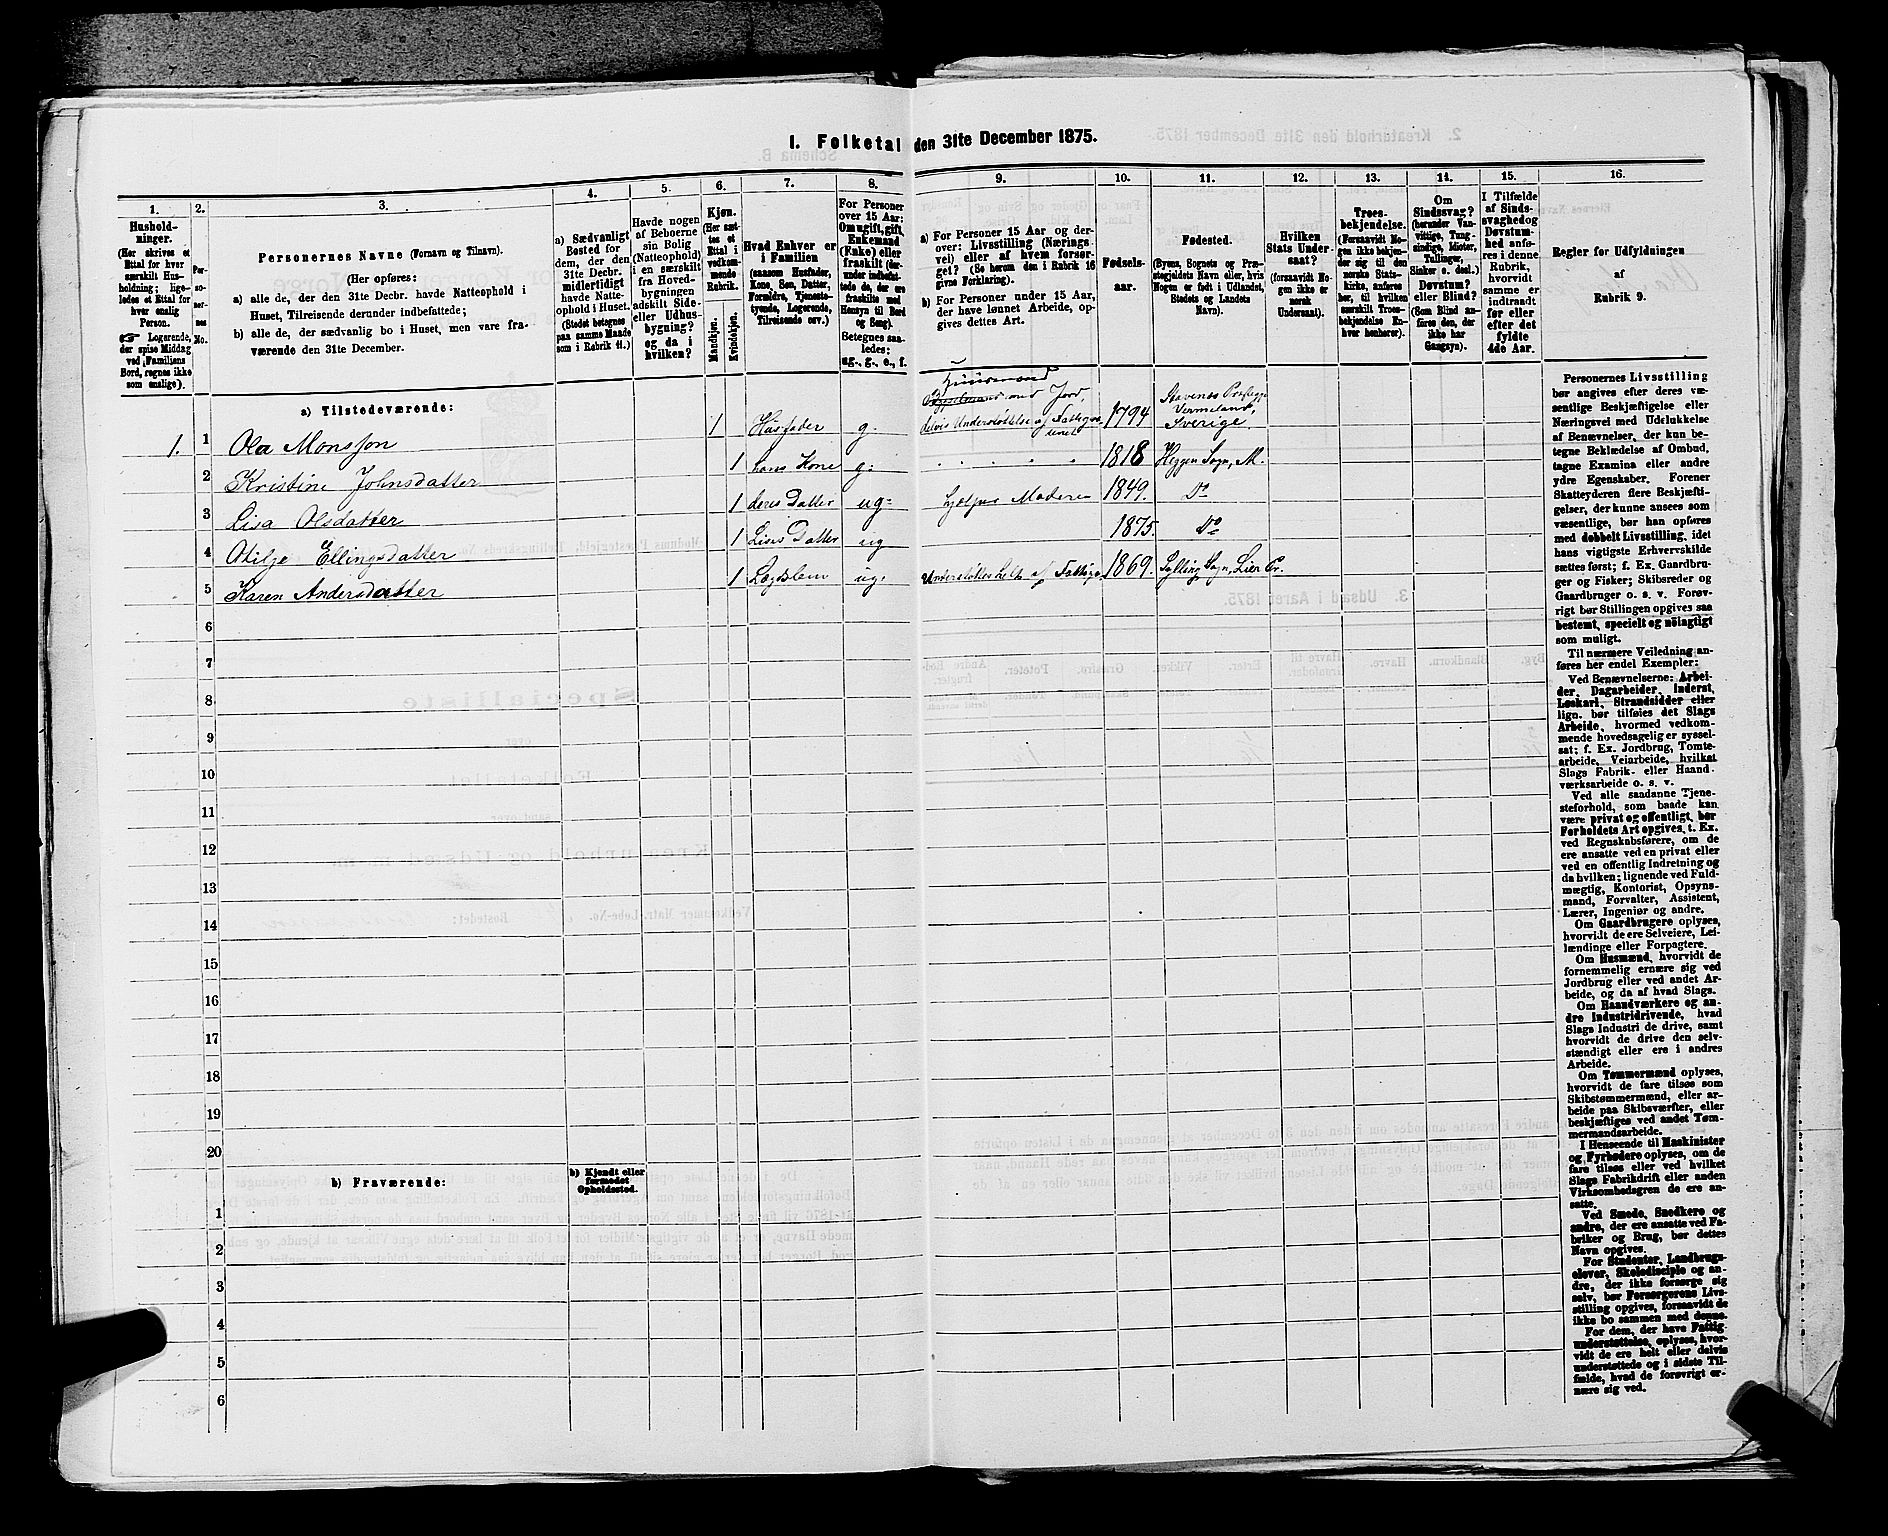 I. Folketal den 31te December 1875.
1.
Hushold-
ninger.
(Her skrives et
Ettal for hver
særskilt Hus-
holdning; lige-
ledes et Ettal for
hver enslig
Person.
☛ Logerende,
der spise Middag
ved Familiens
Bord, regnes ikke
som enslige).
2.
Per-
so-
ner-
nes
No.
3.
Personernes Navne (Fornavn og Tilnavn).
(Her opføres:
a) alle de, der den 31te Decbr. havde Natteophold i
Huset, Tilreisende derunder indbefattede;
b) alle de, der sædvanlig bo i Huset, men vare fra-
værende den 31te December.
4.
a) Sædvanligt
Bosted for
dem, der den
31te Decbr.
midlertidigt
havde Natte-
ophold i Huset.
(Stedet betegnes
paa samme Maade
som i Rubrik 11.)
5.
Havde nogen
af Beboerne
sin Bolig
(Natteophold)
i en særskilt
fra Hoved-
bygningen
adskilt Side-
eller Udhus-
bygning?
og da i
hvilken?
6.
Kjøn.
(Her sæt-
tes et
Ettal i
vedkom-
mende
Rubrik.
Mandkjøn.
Kvindekjøn.
7.
Hvad Enhver er
i Familien
(saasom Husfader,
Kone, Søn, Datter,
Formldre, Tjeneste-
tyende, Logerende,
Tilreisende osv.)
8.
For Personer
over 15 Aar:
Om ugift, gift,
Enkemand
(Enke) eller
fraskilt (der-
under indbefat-
tede de, der ere
fraskilte med
Hensyn til Bord
og Seng).
Betegnes saa-
ledes:
ug., g., e., f.
9.
a) For Personer 15 Aar og der-
over: Livsstilling (Nærings-
vei) eller af hvem forsør-
get? (Se herom den i Rubrik 16
givne Forklaring).
b) For Personer under 15 Aar,
der have lønnet Arbeide, op-
gives dettes Art.
10.
Fødsels-
aar.
11.
Fødested.
(Byens, Sognets og Præ-
stegjeldets Navn eller, hvis
Nogen er født i Udlandet,
Stedets og Landets
Navn).
12.
Hvilken
Stats Under-
saat?
(forsaavidt No-
gen ikke er
norsk
Undersaat).
13.
Troes-
bekjendelse.
(Forsaavidt No-
gen ikke bekjen-
der sig til den
norske Stats-
kirke, anføres
her, til hvilken
særskilt Troes-
bekjendelse En-
hver henhører).
14.
Om
Sindssvag?
(herunder Van-
vittige, Tung-
sindige, Idioter,
Tullinger,
Sinker o. desl.)
Døvstum?
eller Blind?
(Som Blind an-
føres den, der
ikke har
Gangsyn).
15.
I Tilfælde
af Sinds-
svaghed og
Døvstum-
hed anfø-
res i denne
Rubrik,
hvorvidt
samme er
indtraadt
før eller
efter det
fyldte
4de Aar.
16.
Regler for Udfyldningen
af
Rubrik 9.
a) Tilstedeværende:
1. 1 Ola Monsson 1 Husfader g. Huusmand med Jord, delvis Understøttelse af Fattigv. 1794 Stavenes Præstegj. Vermeland, Sverige.
2 Kristine Johnsdatter 1 hans Kone g: 1818 Heggen Sogn, M.
3 Lisa Olsdatter 1 deres Datter ug= hjælper Moderen 1849. Do
4 Otilje Ellingsdatter 1 Lises Datter ug 1875. Do
5 Karen Andersdatter 1 Lægdslem ug: Understøttes helt af Fattigv. 1869. Sylling Sogn, Lier Pr.
6
7
8
9
10
11
12
13
14
15
16
17
18
19
20
b) Fraværende:
b) Kjendt eller
formodet
Opholdssted.
1
2
3
4
5
6
Personernes Livsstilling
bør angives efter deres væ-
sentlige Beskjæftigelse eller
Næringsvei med Udelukkelse
af Benævnelser, der kun be-
tegne Beklædelse af Ombud,
tagne Examina eller andre
ydre Egenskaber. Forener
Skatteyderen flere Beskjæfti-
gelser, der kunne ansees som
væsentlige, bør han opføres
med dobbelt Livsstilling, idet
hans vigtigste Erhvervskilde
sættes først; f. Ex. Gaardbru-
ger og Fisker; Skibsreder og
Gaardbruger o. s. v. Forøv-
rigt bør Stillingen opgives saa
bestemt, specielt og nøiagtigt
som muligt.
Til nærmere Veiledning an-
føres her endel Exempler:
Ved Benævnelserne: Arbei-
der, Dagarbeider, Inderst,
Løskarl, Strandsidder eller
lign. bør tilføies det Slags
Arbeide, hvormed vedkom-
mende hovedsagelig er syssel-
sat; f. Ex. Jordbrug, Tomte-
arbeide, Veiarbeide, hvilket
Slags Fabrik- eller Haand-
værksarbeide o. s. v.
Ved alle saadanne Tjene-
steforhold, som baade kan
være privat og offentligt, bør
Forholdets Art opgives, t. Ex.
ved Regnskabsførere, om de
ere ansatte ved en privat eller
ved en offentlig Indretning og
da hvilken; lignende ved Fuld-
mægtig, Kontorist, Opsyns-
mand, Forvalter, Assistent,
Lærer, Ingeniør og andre.
Om Gaardbrugere oplyses,
hvorvidt de ere Selveiere, Lei-
lændinge eller Forpagtere.
Om Husmænd, hvorvidt de
fornemmelig ernære sig ved
Jordbrug eller ved andet Ar-
beide, og da af hvad Slags.
Om Haandværkere og an-
dre Industridrivende, hvad
Slags Industri de drive, samt
hvorvidt de drive den selv-
stændigt eller ere i andres
Arbeide.
Om Tømmermænd oplyses,
hvorvidt de fare tilsøs som
Skibstømmermænd, eller ar-
beide paa Skibsværfter, eller
beskjæftiges ved andet Tøm-
mermandsarbeide.
I Henseende til Maskinister
og Fyrbødere oplyses, om de
fare tilsøs eller ved hvilket
Slags Fabrikdrift eller anden
Virksombedsgren de ere an-
satte.
Ved Smede, Snedkere og
andre, der ere ansatte ved Fa-
briker og Brug, bør dettes
Navn opgives.
For Studenter, Landbrugs-
elever, Skoledisciple og an-
dre, der ikke forsørge sig
selv, bør Forsørgerens Livs-
stilling opgives, forsaavidt de
ikke bo sammen med denne.
For dem, der have Fattig-
understøttelse, oplyses, hvor-
vidt de ere helt eller delvis
understøttede og i sidste Til-
fælde, hvad de forøvrigt er-
nære sig ved.